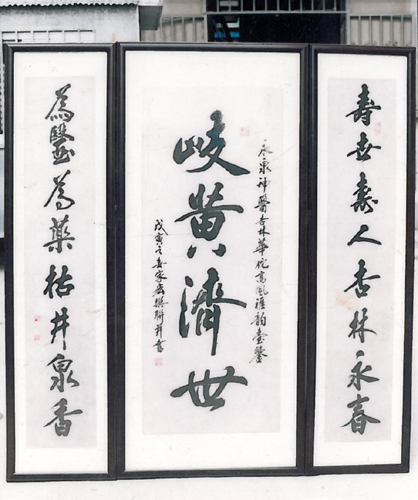 壽世壽人杏林永春
永泉神醫杏林華佗高風雅韵臺鑒
岐黄濟世
戊寅之春家撰聯并書
為醫為藥枯井泉香